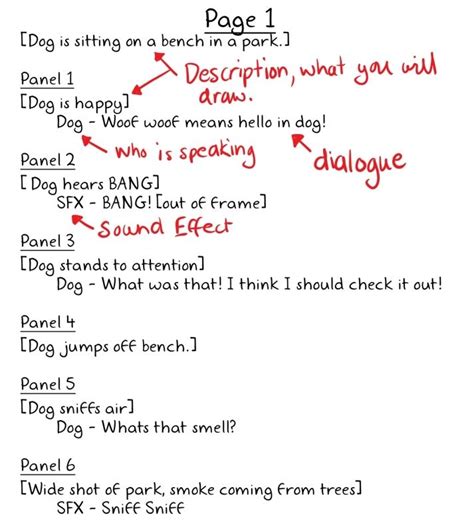 Page 1
[Dog is sitting on a bench in a park.]
Description, what you will
draw.
Panel 1
[Dog is happy]
Dog - Woof woof means hello in dog!
who is speaking
dialogue
Panel 2
[Dog hears BANG]
SFX - BANG! [out of frame]
Sound Effect
Panel 3
[Dog stands to attention]
Dog - What was that! I think I should check it out!
Panel 4
[Dog jumps off bench.]
Panel 5
[Dog sniffs air]
Dog - Whats that smell?
Panel 6
[Wide shot of park, smoke coming from trees]
SFX - Sniff Sniff